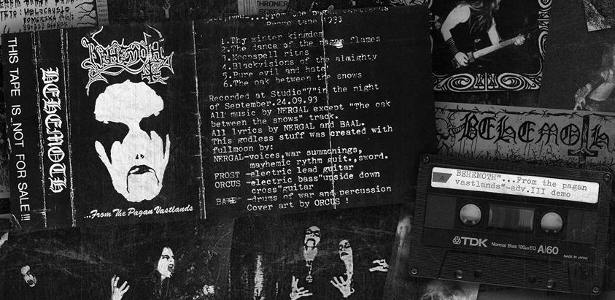 THIS TAPE IS NOT FOR SALE!!!
BEHEMOTH
BEHEMOTH
...From The Pagan Vastlands
1.Thy winter kingdom
2.The dance of the pagan flames
4.Blackvisions of the almighty
5.Pure evil and hate
6.The oak between the snows
Recorded at Studio"7"in the night
of September.24.09.93
All music by NERGAL except "The oak
between the snows" track.
All lyrics by NERGAL and BAAL.
This godless stuff was created with
fullmoon by:
NERGAL-voices,war summonings,
mayhemic rythm guit.,sword.
FROST -electric lead guitar
ORCUS -electric bass"upside down
cross"guitar
-drums of war and percussion
Cover art by ORCUS !
BEHEMOTH
BEHEMOTH"...From the pagan
vastlands"-adv.III demo
TDK
A|60